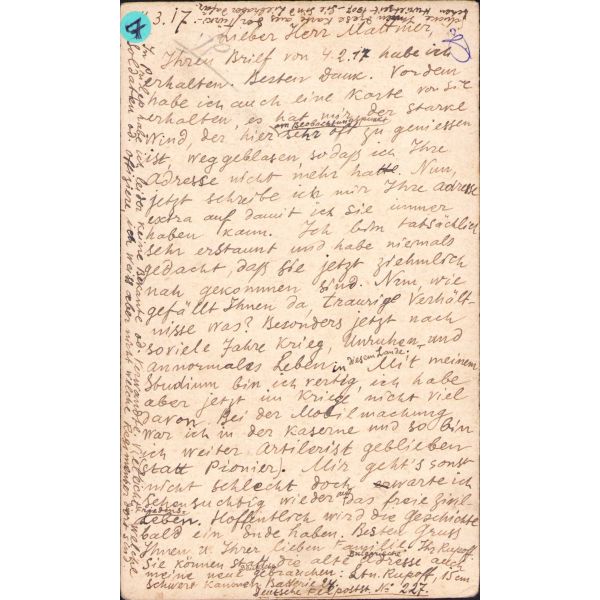 11.3.17
Lieber Herr Mattmer,
Ihren Brief von 4.2.17 habe ich
erhalten. Besten Dank. Vordem
habe ich auch eine Karte von Sie
erhalten, es hat mir der starke
am Beobachtungspunkt
Wind, der hier sehr oft zu geniessen
ist weggeblasen, sodaß ich Ihre
Adresse nicht mehr hatte. Nun,
jetzt schreibe ich mir Ihre Adresse
extra auf damit ich sie immer
haben kann. Ich bin tatsächlich
sehr erstaunt und habe niemals
gedacht, daß Sie jetzt ziehmlich
nah gekommen sind. Nun, wie
gefällt Ihnen da, traurige Verhält-
nisse was? Besonders jetzt nach
soviele Jahre Krieg, Unruhen, und
annormales Leben in diesem Lande. Mit meinem
Studium bin ich vertig, ich habe
aber jetzt im Kriege nicht viel
davon. Bei der Mobilmachung
war ich in der Kaserne und so bin
ich weiter Artilerist geblieben
(statt Pionier). Mir geht's sonst
nicht schlecht doch warte ich
sehensuchtig wieder auf das freie zivil-
Leben. Hoffentlich wird die Geschichte
bald ein Ende haben. Besten Gruss
Ihnen u. Ihrer lieben Familie. Ihr Rupoff
Sie können statt die alte Adresse auch
meine neue gebrauchen: Ltn. Rupoff, 15 cm
Bulgarische
Schwere Kanonen Batterie
Deutsche Feldpostst. No 227.
habe ich leider keine Bekannte od. Verwandte. Vielleicht welche
Soldaten od. Offiziere, ich weiß aber nicht welche Regimenter dort sind